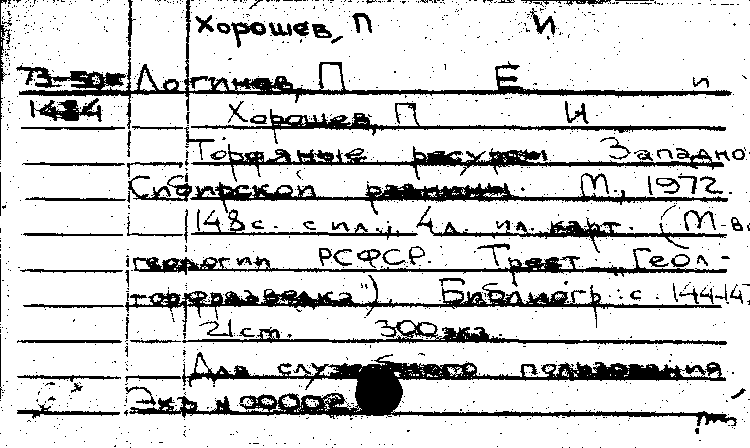 Хорошев, П И
73-50ж Логинов, П Е и
1484 Хорошев, П И
Торфяные ресурсы Западно-
Сибирской равнины. М., 1972.
148 с. с ил.; 4 л. ил. карт. (М-во
геологии РСФСР. Трест "Геол-
торфразведка"). Библиогр.: с. 144-147
21 ст. 300 экз.
Для служебного пользования.
Экз N 00002